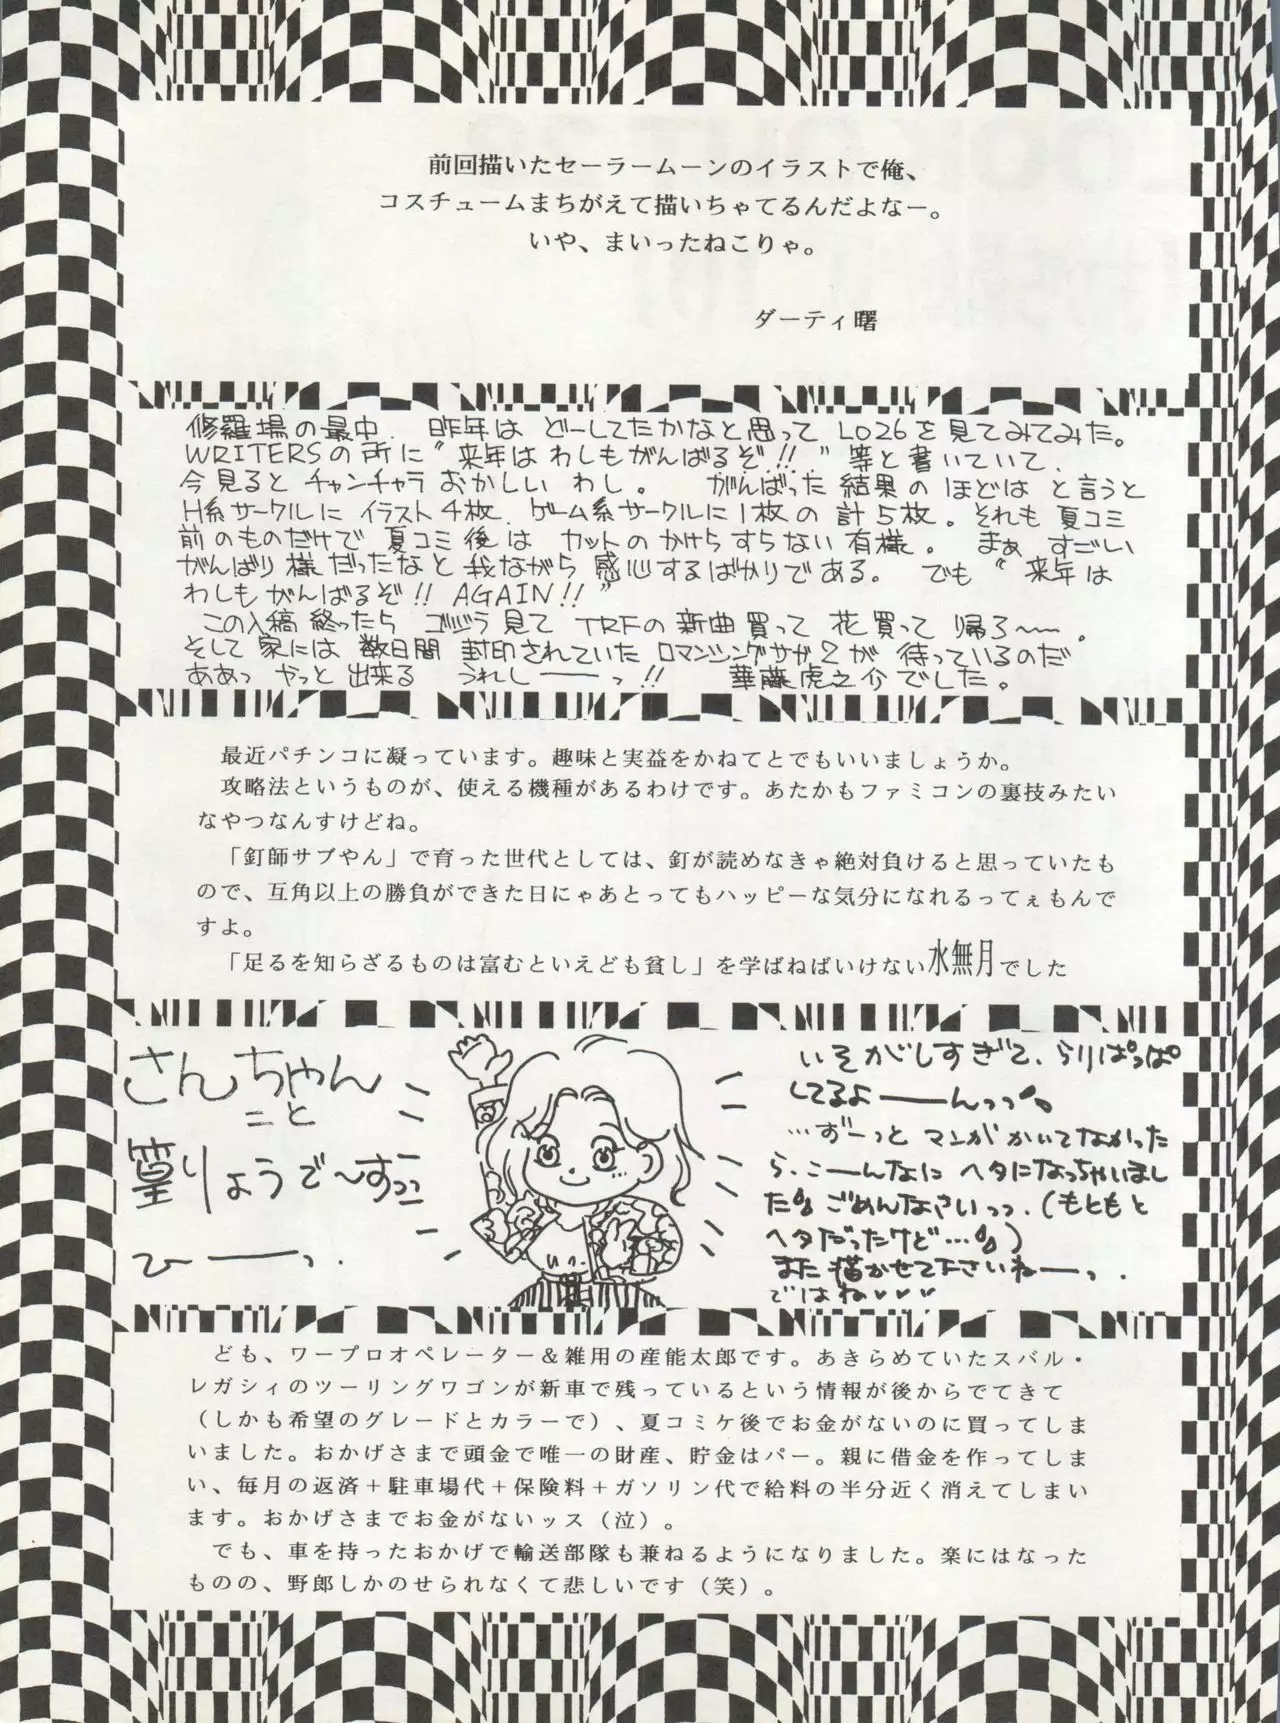 前回描いたセーラームーンのイラストで俺、
コスチュームまちがえて描いちゃてるんだよなー。
いや、まいったねこりゃ。
ダーティ曙
修羅場の最中、昨年は どーしてたかなと思って LO26を見てみてみた。
WRITERSの所に“来年は わしもがんばるぞ!!”等と書いていて、
今見ると チャンチャラ おかしい わし。 がんばった 結果の ほどは と言うと
H系サークルに イラスト4枚、ゲーム系サークルに1枚の 計5枚。それも 夏コミ
前のものだけで 夏コミ後は カットの かけら すらない 有様。 まぁ すごい
がんばり 様だったなと 我ながら 感心するばかりである。 でも“来年は
わしもがんばるぞ!! AGAIN!!”
この入稿 終ったら ゴジラ 見て TRFの 新曲 買って 花買って 帰ろ〜〜。
そして 家には 数日間 封印されていた ロマンシングサガ2が 待っているのだ
ああっ やっと 出来る うれしーーっ!! 華藤虎之介でした。
最近パチンコに凝っています。趣味と実益をかねてとでもいいましょうか。
攻略法というものが、使える機種があるわけです。あたかもファミコンの裏技みたい
なやつなんすけどね。
「釘師サブやん」で育った世代としては、釘が読めなきゃ絶対負けると思っていたも
ので、互角以上の勝負ができた日にゃあとってもハッピーな気分になれるってぇもんで
すよ。
「足るを知らざるものは富むといえども貧し」を学ばねばいけない水無月でした
さんちゃん
こと
篁りょうで〜すっっ
ひーーっ.
いそがしすぎて、らりぱっぱ
してるよーーんっっ
…ずーっと マンガ かいてなかった
ら、こーんなに ヘタになっちゃいまし
た ごめんなさいっっ.(もともと
ヘタだったけど…)
また 描かせて下さいねーっ.
ではね♥♥♥
ども、ワープロオペレーター&雑用の産能太郎です。あきらめていたスバル・
レガシィのツーリングワゴンが新車で残っているという情報が後からでてきて
(しかも希望のグレードとカラーで)、夏コミケ後でお金がないのに買ってしま
いました。おかげさまで頭金で唯一の財産、貯金はパー。親に借金を作ってしま
い、毎月の返済+駐車場代+保険料+ガソリン代で給料の半分近く消えてしまい
ます。おかげさまでお金がないッス(泣)。
でも、車を持ったおかげで輸送部隊も兼ねるようになりました。楽にはなった
ものの、野郎しかのせられなくて悲しいです(笑)。